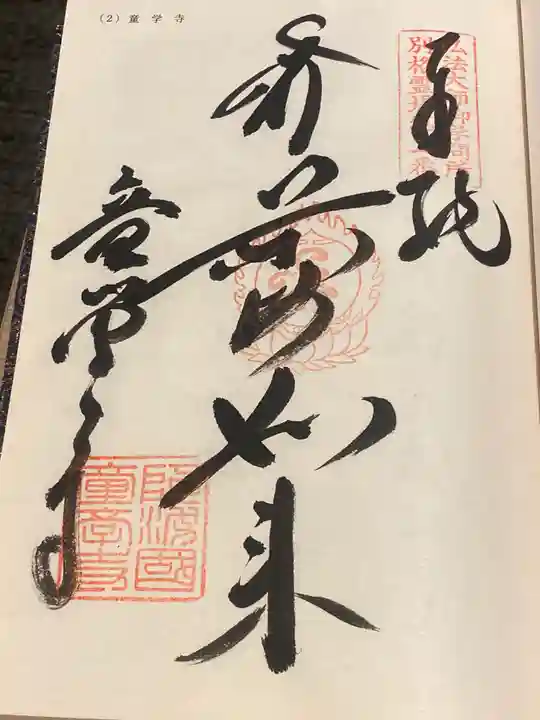 (2)童学寺
奉納
弘法大師御学問所
別格霊場二番
薬師如来
童学寺
阿波國
童学寺